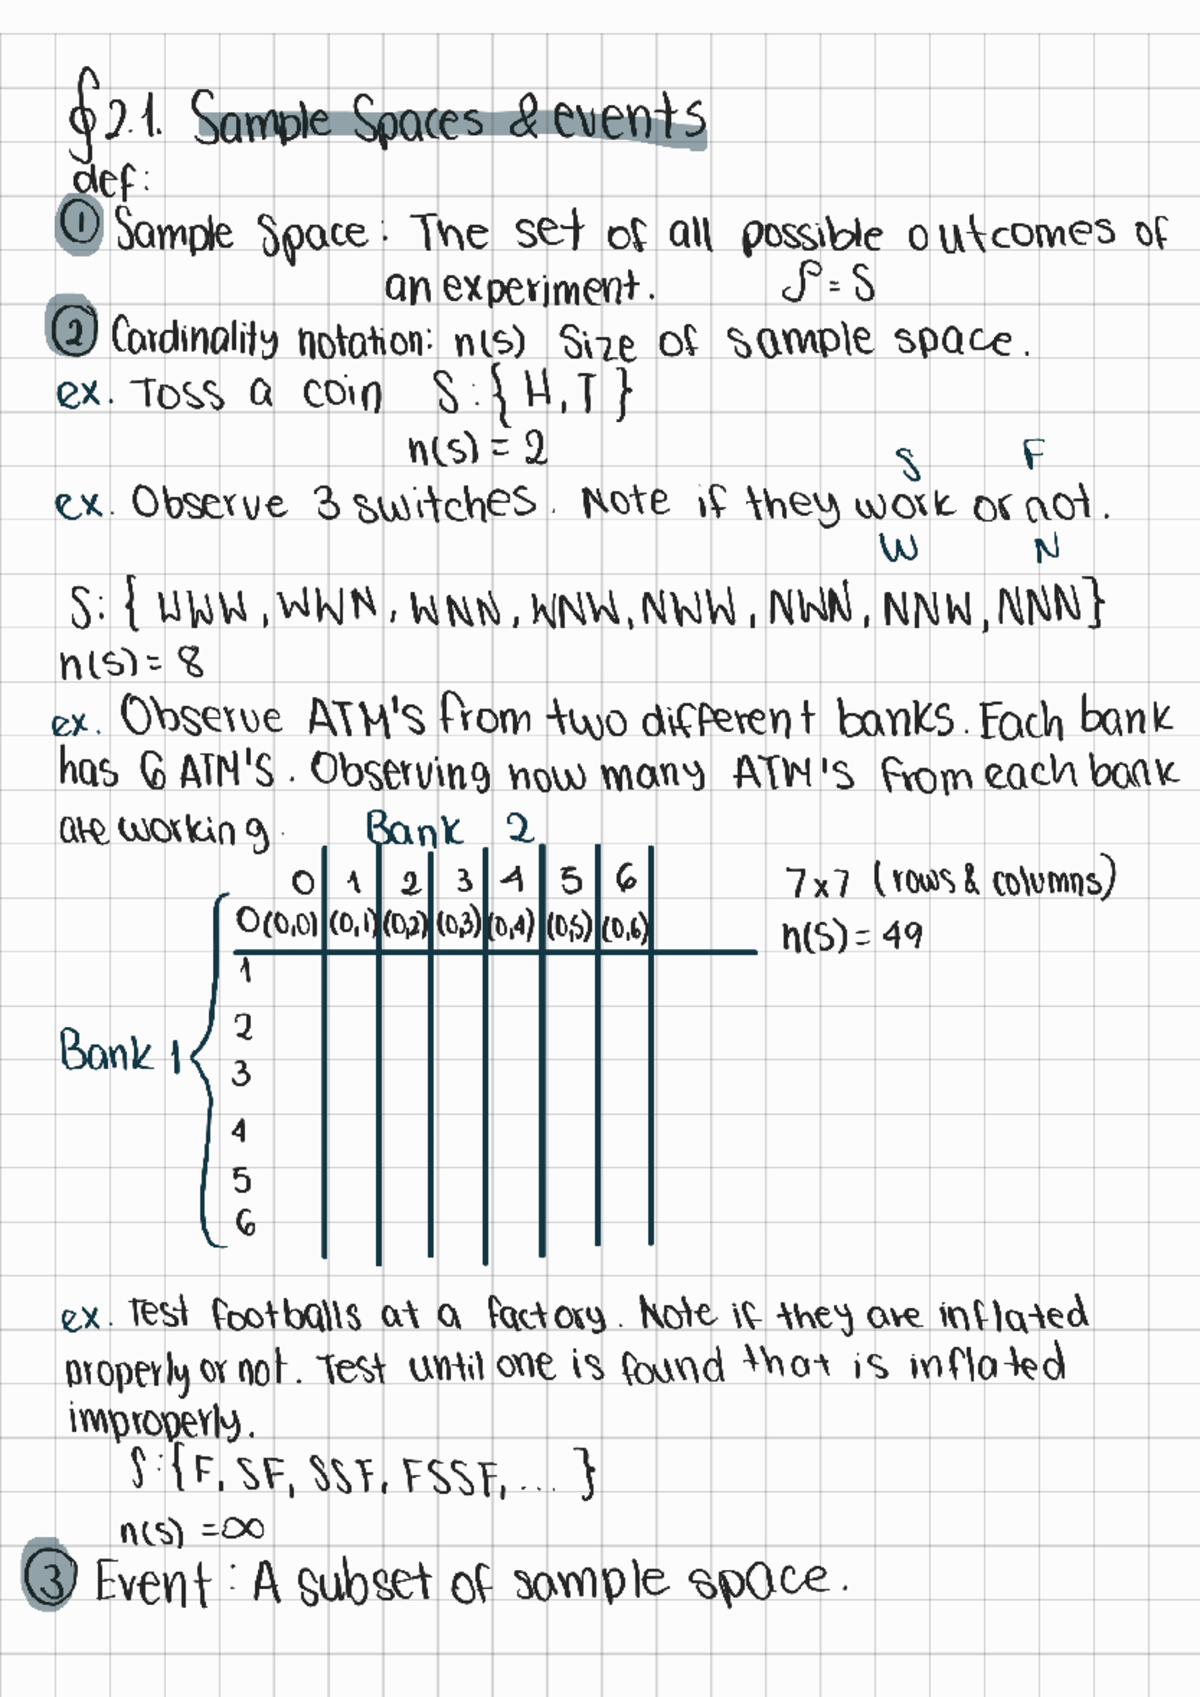 §2.1. Sample Spaces & events
def:
① Sample Space: The set of all possible outcomes of
an experiment. 𝒮 = S
② Cardinality notation: n(s) Size of sample space.
ex. Toss a coin S:{H,T}
n(s) = 2
S F
ex. Observe 3 switches. Note if they work or not.
W N
S:{WWW, WWN, WNN, WNW, NWW, NWN, NNW, NNN}
n(s)= 8
ex. Observe ATM's from two different banks. Each bank
has 6 ATM'S. Observing how many ATM's from each bank
are working.
Bank 2
0 1 2 3 4 5 6
0 (0,0) (0,1) (0,2) (0,3) (0,4) (0,5) (0,6)
7x7 (rows & columns)
n(S)= 49
1
2
Bank 1
3
4
5
6
ex. Test footballs at a factory. Note if they are inflated
properly or not. Test until one is found that is inflated
improperly.
S:{F, SF, SSF, FSSF, ... }
n(s) =∞
③ Event: A subset of sample space.